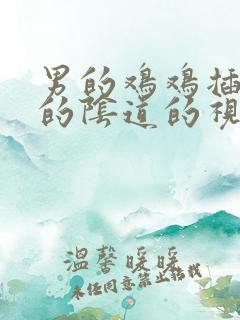 男的鸡鸡插
的陰道的視
溫馨暖暖
未经同意禁止转载